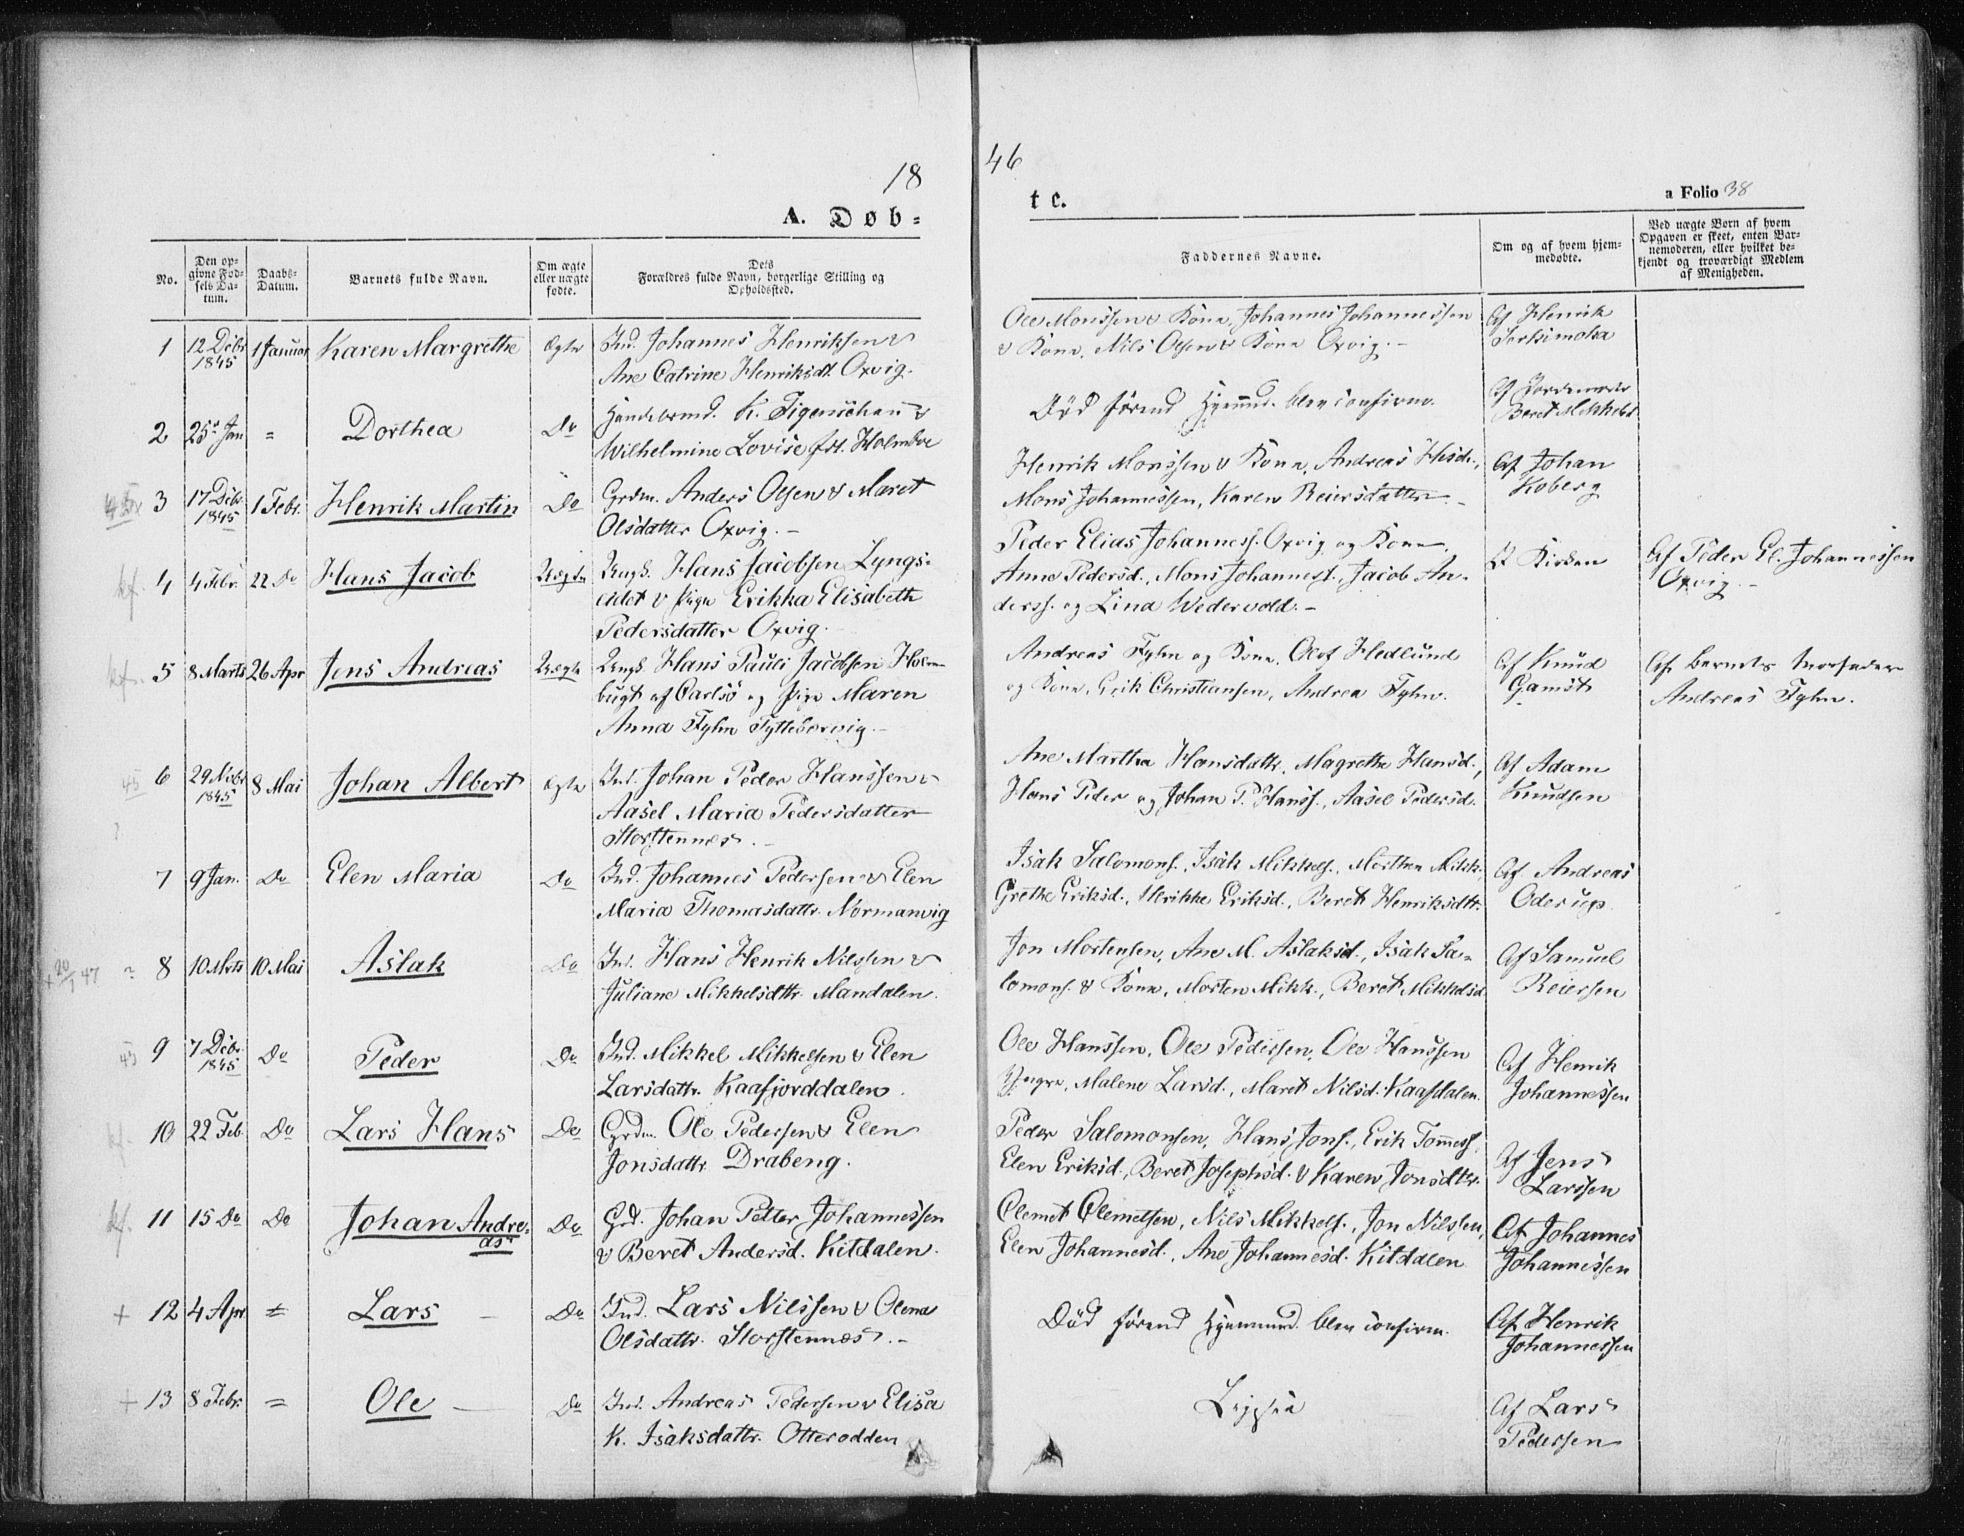 18
46
A. Døb=
te.
a Folio 38
No.
Den op=
givne Fød=
sels Da=
tum.
Daabs=
Datum.
Barnets fulde Navn.
Om ægte
eller uægte
fødte.
Dets
Forældres fulde Navn, borgerlige Stilling og
Opholdssted.
Faddernes Navne.
Om og af hvem hjem=
medøbte.
Ved uægte Børn af hvem
Opgaven er skeet, enten Bar=
nemoderen, eller hvilket be=
kjendt og troværdigt Medlem
af Menigheden.
1
12 Decbr
1845
1 Januar
Karen Margrethe
Ægte
Ind. Johannes Henriksen &
Ane Catrine Henriksdt. Oxvig.
Ole Monssen & Kone, Johannes Johannessen
& Kone, Nils Olsen & Kone Oxvig. -
Af Henrik
2
25 Jan
=
Dorthea
Do
K. Figenschau &
Wilhelmine Lovise fdt. Holmboe
Død førend Hjemmed. blev confirm.
Af Jordemoder
Beret Mikkelsd
3
17 Decbr.
1845
1 Febr.
Henrik Martin
Do
Grdm. Anders Olsen & Maret
Olsdatter Oxvig. -
Henrik Monssen & Kone, Andreas
Mons Johannessen, Karen Reiersdatter -
Af Johan
Koberg
kf.
4
4 Febr.
22 Do
Hans Jacob
Uægte
Ungk. Hans Jacobsen Lyngs-
eidet & Pige Erikka Elisabeth
Pedersdatter Oxvig.
Peder Elias Johanness. Oxvig og Kone,
Anne Pedersd., Mons Johanness., Jacob An-
derss. og Lina Wedervold. -
I Kirken
Af Peder El. Johannessen
Oxvig. -
kf.
5
8 Marts
26 Apr
Jens Andreas
Uægte
Ungk. Hans Pauli Jacobsen Holm-
bugt af Carlsö og Pige Maren
Anna Fyhn Tyttebærvig. -
Andreas Fyhn og Kone, Olof Hedlund
og Kone, Erik Christiansen, Andrea Fyhn.
Af Knud
Gamst
Af Barnets Morfader
Andreas Fyhn.
45
6
29 Novbr
1845
8 Mai
Johan Albert
Ægte
Ind. Johan Peder Hanssen &
Aasel Maria Pedersdatter
Storstennes. -
Ane Martha Hansdattr., Magrethe Hansd.,
Hans Peder og Johan P. Hanss., Aasel Pedersd.
Af Adam
Knudsen
?
7
9 Jan.
Do
Elen Maria
Do
Ind. Johannes Pedersen & Elen
Maria Thomasdattr. Normanvig
Isak Salomons., Isak Mikkels., Morthen Mikk.,
Grethe Eriksd., Ulrikke Eriksd., Beret Henriksdtr.
Af Andreas
Oderup
+ 20/1 47
?
8
10 Mrts
10 Mai
Aslak
Do
Ind. Hans Henrik Nilssen &
Juliane Mikkelsdttr. Mandalen.
Jon Mortensen, Ane M. Aslaksd., Isak Sa-
lomons. & Kone, Morten Mikk., Beret Mikkelsd
Af Samuel
Reiersen
45
9
7 Decbr.
1845
Do
Peder
Do
Ind. Mikkel Mikkelsen & Elen
Larsdattr. Kaafjorddalen.
Ole Hanssen, Ole Pedersen, Ole Hanssen
Yngre, Malene Larsd., Maret Nilsd. Kaafdalen.
Af Henrik
Johannessen
kf.
10
22 Feb.
Do
Lars Hans
Do
Grdm. Ole Pedersen & Elen
Jonsdattr. Drabeng.
Peder Salomonsen, Hans Jons., Erik Tommess.,
Elen Eriksd., Beret Josephsd. & Karen Jonsdtr.
Af Jens
Larssen
kf.
11
15 Do
Do
Johan Andre-
as
Do
Grd. Johan Petter Johannessen
& Beret Andersd. Kitdalen.
Clemet Clemetsen, Nils Mikkels., Jon Nilssen,
Elen Johannesd., Ane Johannesd. Kitdalen
Af Johannes
Johannessen
+
12
4 Apr
=
Lars
Do
Ind. Lars Nilssen & Olena
Olsdattr. Storstennes. -
Død førend Hjemmed. blev confirm.
Af Henrik
Johannessen
+
13
8 Febr.
=
Ole
Do
Ind. Andreas Pedersen & Elisa
K. Isaksdattr. Otterodden
Ligesaa
Af Lars
Pedersen